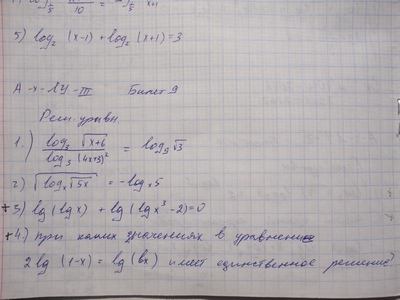 5) log₂ (x-1) + log₂ (x+1) = 3
А -х- лу - III Билет 9
Реш. уравн.
1.) log₃ √(x+6) / log₃ (4x+3)² = log₉ √3
2) √(logₓ √(5x)) = -logₓ 5
+3) lg (lg x) + lg (lg x³ - 2) = 0
+4) при каких значениях в уравнение
2 lg (1-x) = lg (bx) имеет единственное решение?